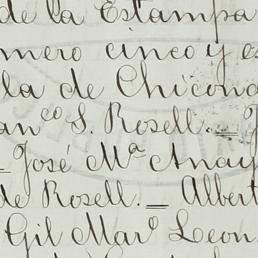 de la Estampa
mero cinco y es
la de Chicona
an.co S. Rosell.—
— José Ma. Anay
de Rosell.— Albert
Gil Mar.o Leon.